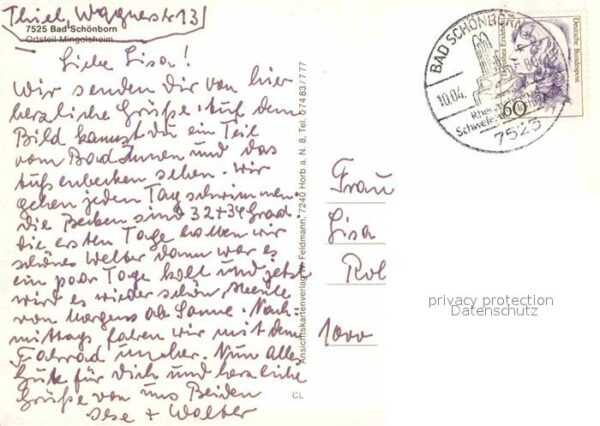 Thiel, Wagnerstr 13
7525 Bad Schönborn
Ortsteil Mingolsheim
Liebe Lisa!
Wir senden Dir von hier
herzliche Grüße. Auf dem
Bild kannst Du ein Teil
vom Bad Innen und das
Außenbecken sehen. Wir
gehen jeden Tag schwimmen.
die Becken sind 32+34 Grad
die ersten Tage hatten wir
schönes Wetter dann war es
ein paar Tage kalt und jetzt
wird es wieder schön, Heute
von Morgens ab Sonne. Nach-
mittags fahren wir mit dem
Fahrrad umher. Nun alles
Gute für Dich und herzliche
Grüße von uns Beiden
Ilse + Walter
Ansichtskartenverlag W. Feldmann, 7240 Horb a. N. 8, Tel. 07483/777
CL
BAD SCHÖNBORN
10.04.
Schwefel
7525
60
Deutsche Bundespost
Frau
Lisa
Rol
1000
privacy protection
Datenschutz